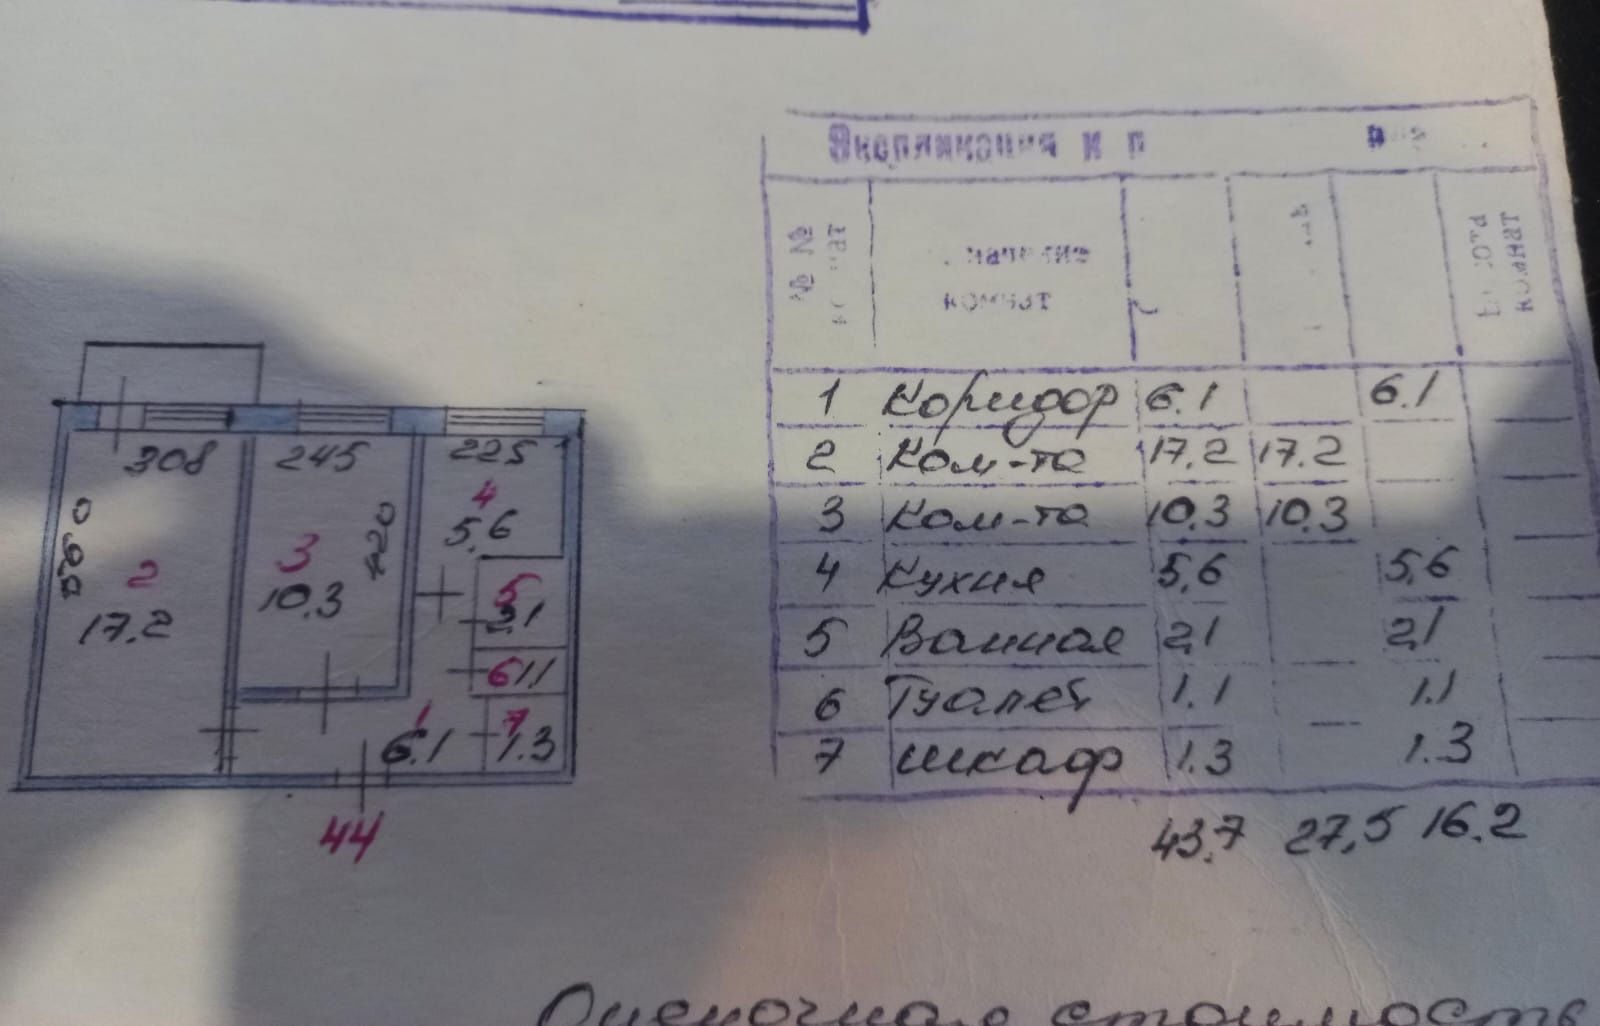 Экспликация к п
№ №
наз
комнат
комнат
1 Коридор 6.1 6.1
2 Ком-та 17.2 17.2
3 Ком-та 10.3 10.3
4 Кухня 5,6 5,6
5 Ванная 2,1 2,1
6 Туалет 1.1 1.1
7 шкаф 1.3 1.3
43.7 27,5 16.2
308 245 225
4
5,6
560
2
17.2
3
420
10.3
5
2,1
6 1,1
1
6.1
7
1.3
44
Оценочная стоимость